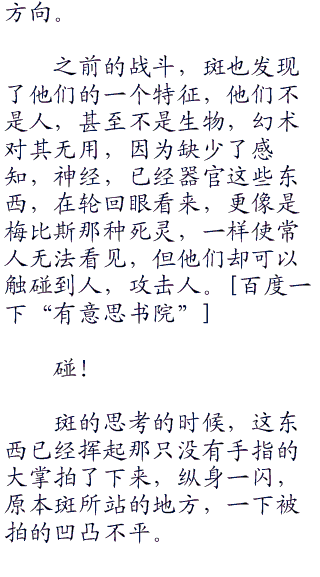 方向。
之前的战斗，斑也发现
了他们的一个特征，他们不
是人，甚至不是生物，幻术
对其无用，因为缺少了感
知，神经，已经器官这些东
西，在轮回眼看来，更像是
梅比斯那种死灵，一样使常
人无法看见，但他们却可以
触碰到人，攻击人。[百度一
下“有意思书院”]
碰！
斑的思考的时候，这东
西已经挥起那只没有手指的
大掌拍了下来，纵身一闪，
原本斑所站的地方，一下被
拍的凹凸不平。